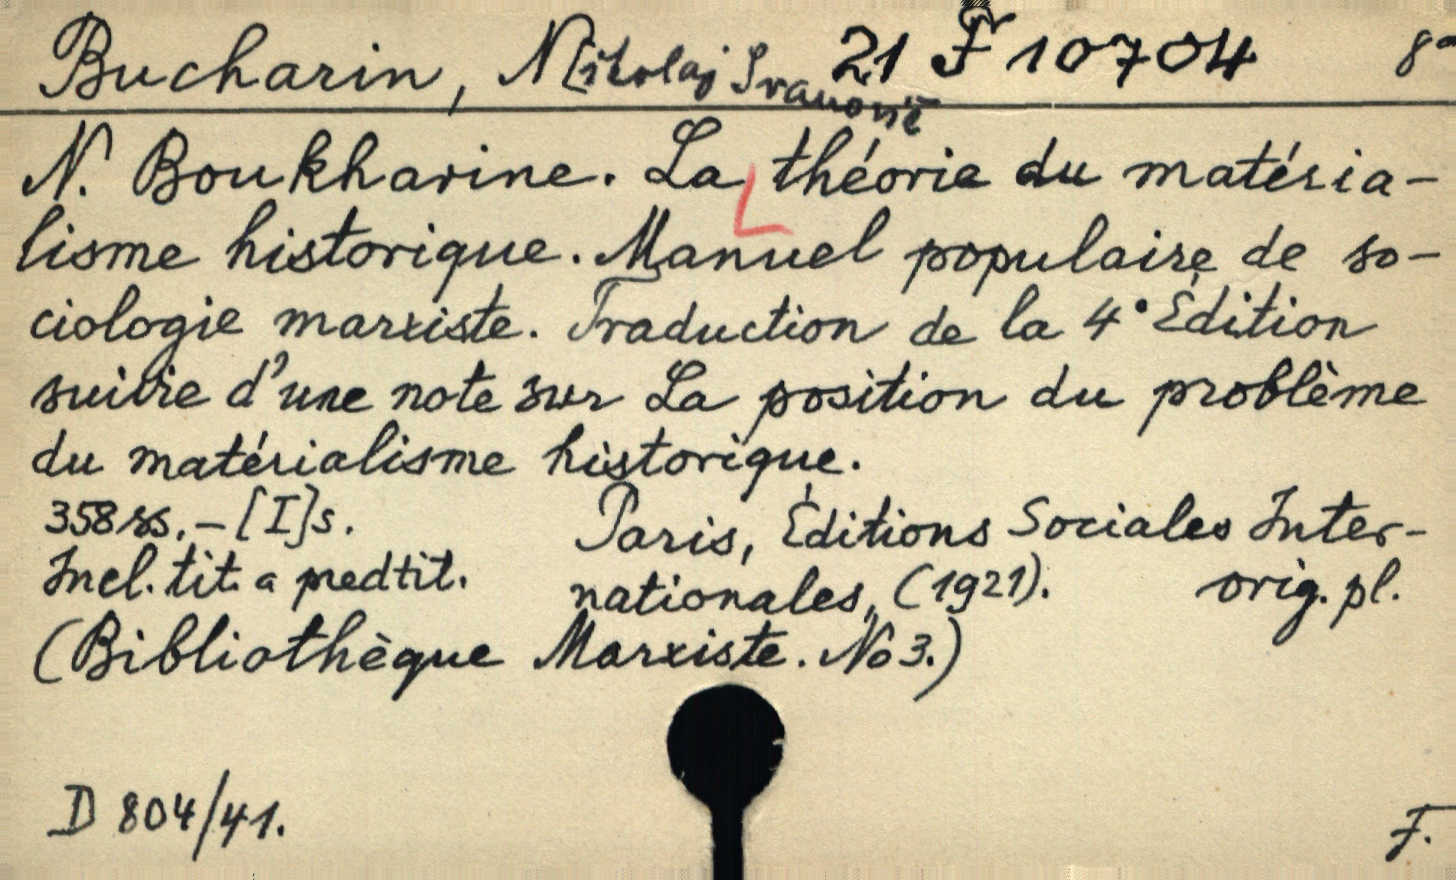 Bucharin, N[ikolaj Ivanovič 21 F 10704 8°
N. Boukharine. La théorie du matéria-
lisme historique. Manuel populaire de so-
ciologie marxiste. Traduction de la 4° Édition
suivie d'une note sur La position du problème
du matérialisme historique.
358 ss. - [I] s.
Incl. tit. a predtit.
Paris, Éditions Sociales Inter-
nationales, (1921). orig. pl.
(Bibliothèque Marxiste. No 3.)
D 804/41.
F.